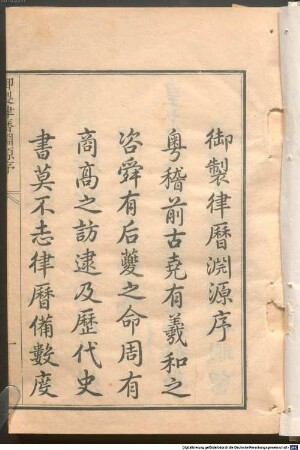 御製律曆淵源序
粵稽前古堯有羲和之
咨舜有后夔之命周有
商高之訪逮及歷代史
書莫不志律曆備數度
御製律曆淵源序
一